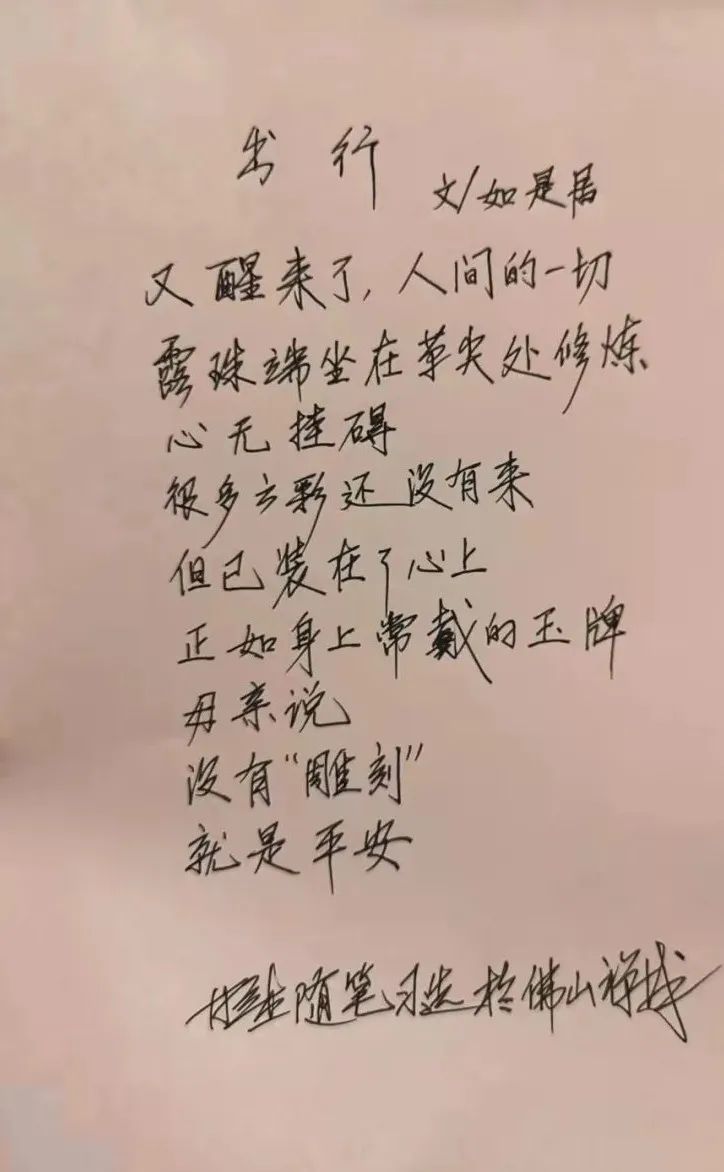 出行
文/如是居
又醒来了,人间的一切
露珠端坐在草尖处修炼
心无挂碍
很多云彩还没有来
但已装在了心上
正如身上常戴的玉牌
母亲说
没有“雕刻”
就是平安
随笔习选於佛山禅城